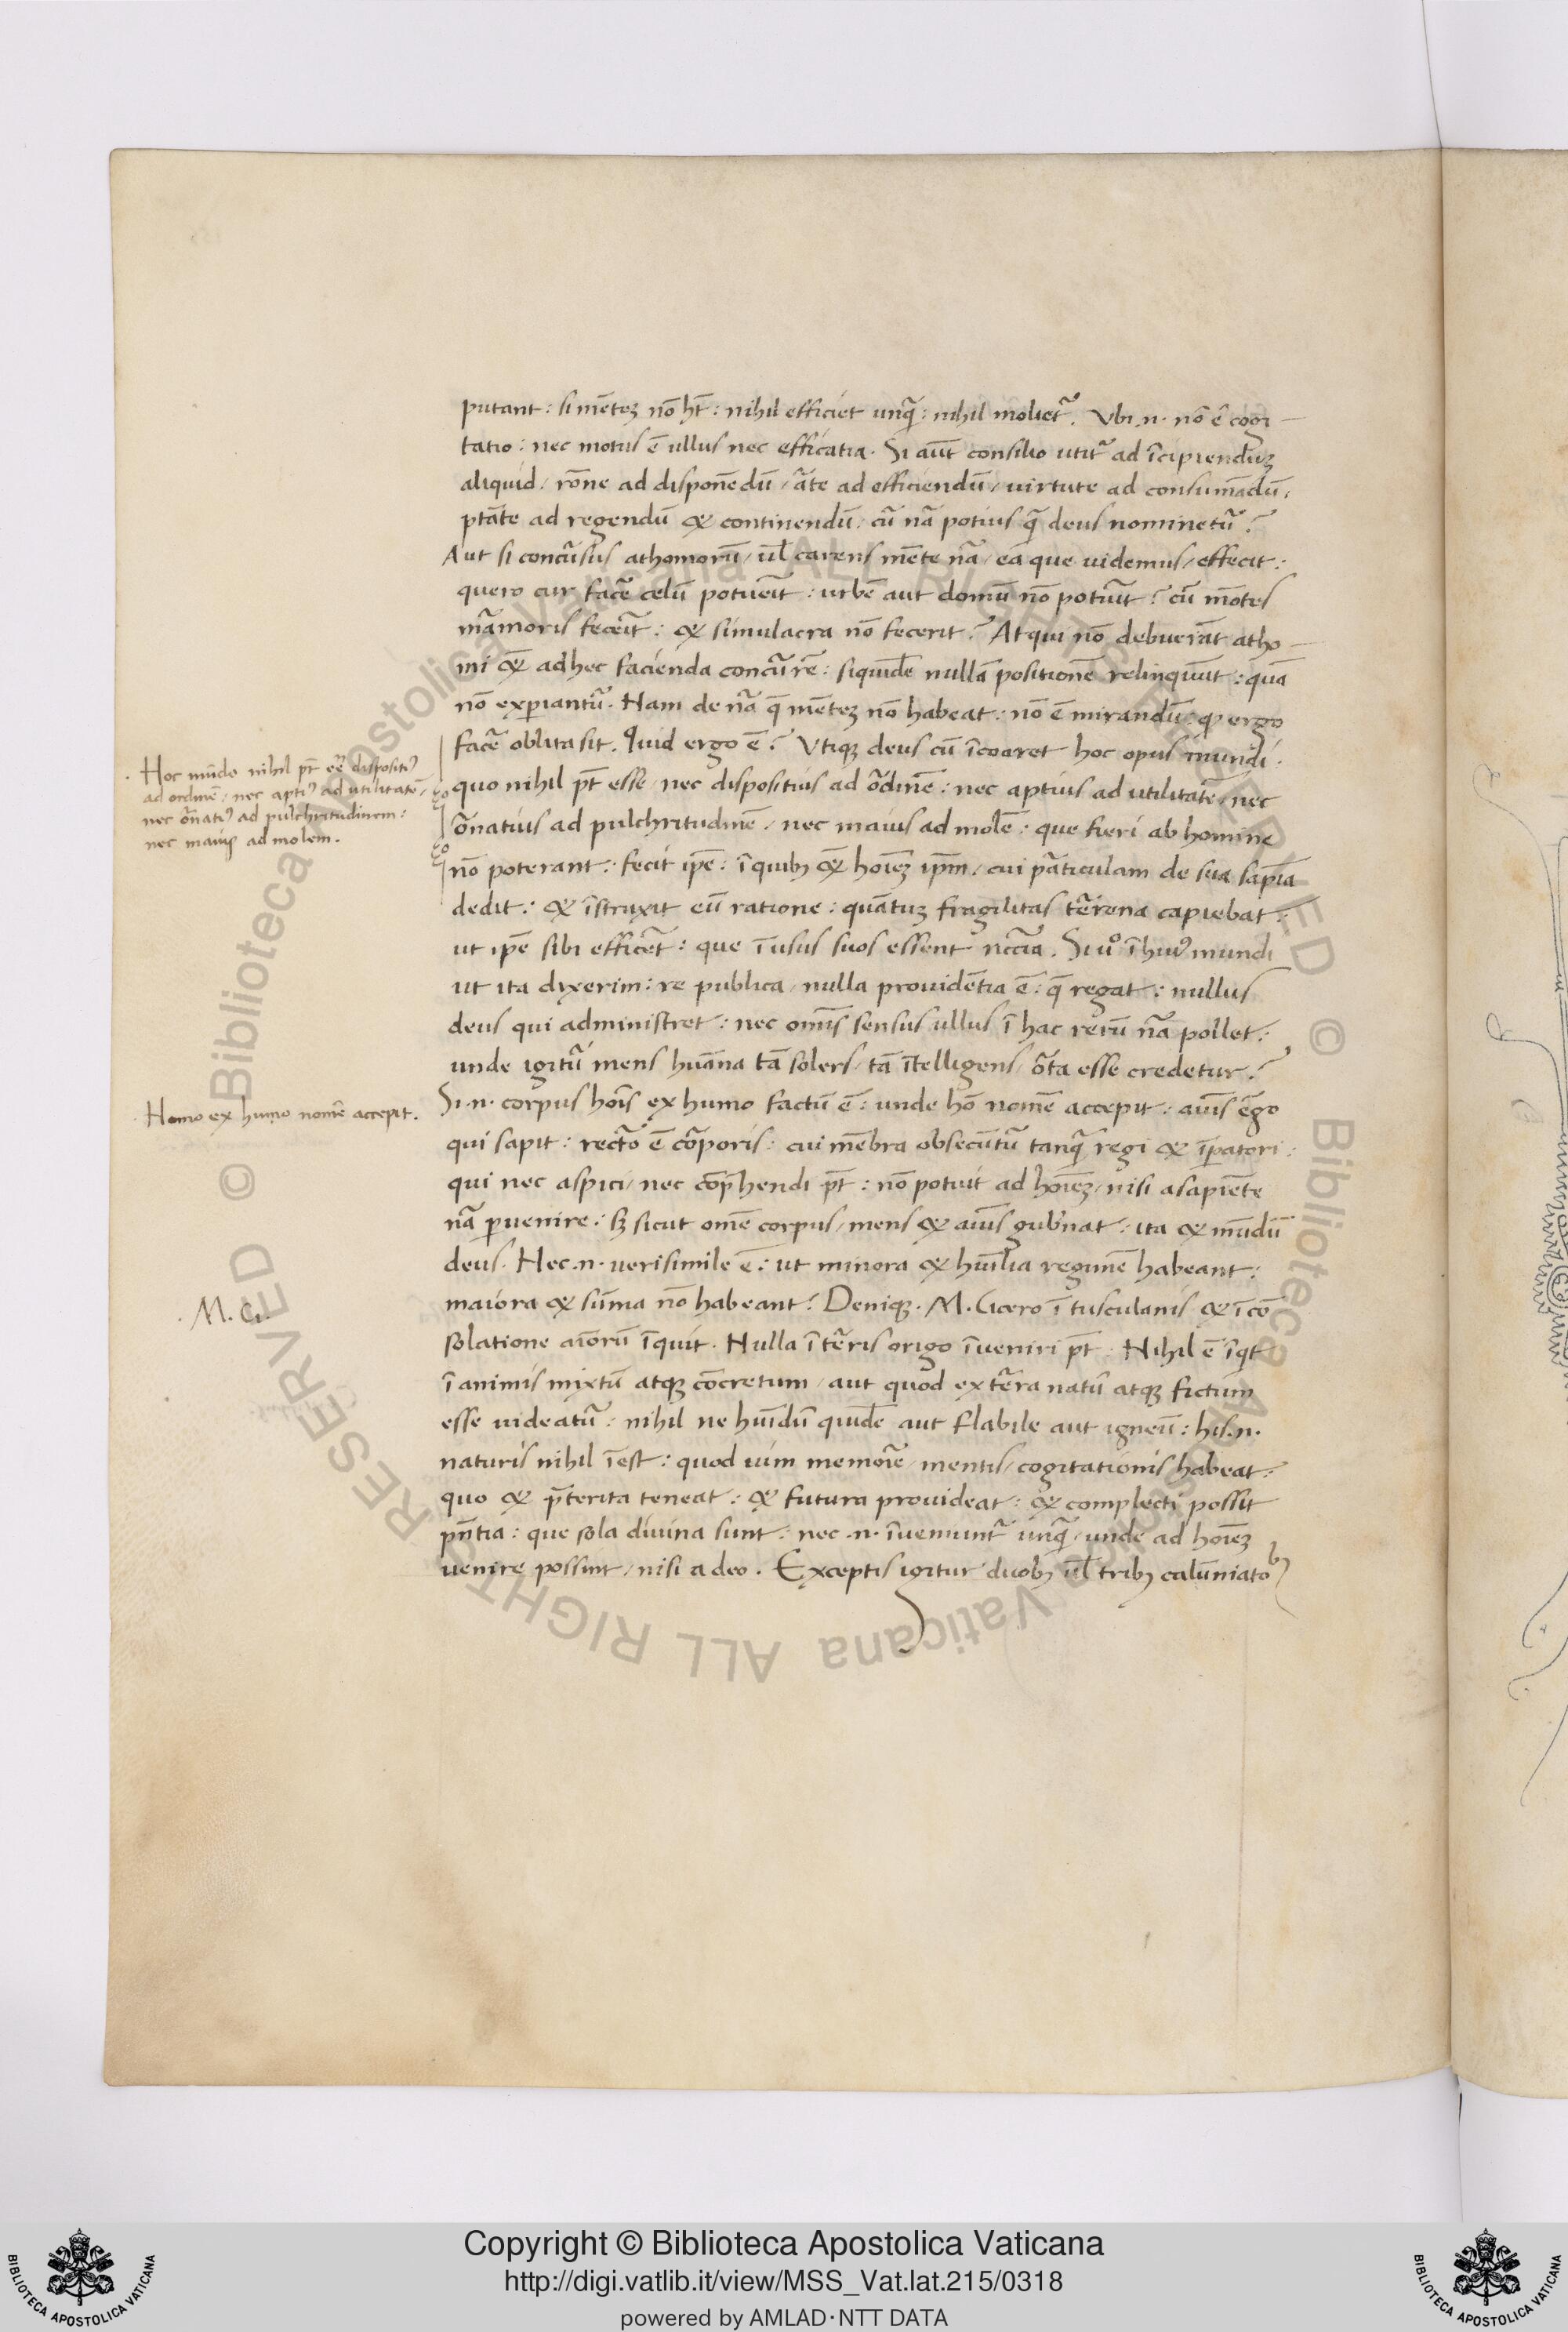 putant: si mētez nō hēt: nihil efficiet unq̄: nihil moliet᷑. Vbi .n. nō ē cogi-
tatio: nec motus ē ullus nec efficatia. Si aūt consilio utit᷑ ad īcipienduz
aliquid, rōne ad disponēdū, āte ad efficiendū, uirtute ad consumādū,
ptāte ad regendū & continendū, cū nā potius q̄ deus nominetū?
Aut si concūsus athomorū, ūl carens mēte nā, ea que uidemus, effecit:
quero cur facē celū potueīt: urbē aut domū nō potuīt? cū mōtes
māmoris feceīt: & simulacra nō fecerit? Atqui nō debuerāt atho-
mi &̄ ad hec facienda concūrē: siquidē nullā positionē relinquūt: quā
nō expiantū. Nam de nā q̄ mētez nō habeat: nō ē mirandū: ergo
facē oblita sit. Quid ergo ē? Vtiqz deus cū īcoaret hoc opus mundi:
quo nihil pt̄ esse, nec dispositius ad ōdinē: nec aptius ad utilitatē, nec
ōnatius ad pulchritudinē, nec maius ad molē: que fieri ab homine
nō poterant: fecit ipē: ī quibꝫ &̄ hoīez ipm̄, cui pāticulam de sua sapīa
dedit: & īstruxit eū ratione: quātuz fragilitas tērena capiebat:
ut ipē sibi efficēt: que ī usus suos essent nccīa. Si uº ī huiꝰ mundi
ut ita dixerim: re publica, nulla prouidētia ē: q̄ regat: nullus
deus qui administret: nec omīs sensus ullus ī hac rerū nā pollet:
unde igitū mens huāna tā solers, tā ītelligens, ōta esse credetur?
Si .n. corpus hoīs ex humo factū ē: unde hō nomē accepit: aīus ēgo
qui sapit: rectō ē cōporis: cui mēbra obsecūtū tanq̄ regi & īpatori:
qui nec aspici, nec cōp̄hendi pt̄: nō potuit ad hoīez, nisi a sapiēte
nā puenire: sꝫ sicut omē corpus, mens & aīus gub̄nat: ita & mūdū
deus. Nec .n. uerisimile ē: ut minora & huīlia regimē habeant:
maiora & sūma nō habeant? Deniqz. M. Cicero ī tusculanis & ī cō
solatione aīorū īquit. Nulla ī tēris origo īueniri pt̄. Nihil ē īqt
ī animis mixtū atqz cōcretum, aut quod ex tēra natū atqz fictum
esse uideatū: nihil ne huīdū quidē aut flabile aut igneū: his .n.
naturis nihil īest: quod uim memoīe, mentis, cogitationis habeat:
quo & p̄terita teneat: & futura prouideat: & complecti possit
pn̄tia: que sola diuina sunt: nec .n. īueniunt᷑ unq̄, unde ad hoīez
uenire possint, nisi a deo. Exceptis igitur duobꝫ ūl tribꝫ calūniatobꝫ
. Hoc mūdo nihil pt̄ eē dispositiꝰ
ad ordinē, nec aptiꝰ ad utilitatē,
nec ōnatiꝰ ad pulchritudinem:
nec maius ad molem.
. Homo ex humo nomē accepit.
. M. Ci.
© Biblioteca Apostolica Vaticana ALL RIGHTS RESERVED © Biblioteca Apostolica Vaticana ALL RIGHTS RESERVED
Copyright © Biblioteca Apostolica Vaticana
http://digi.vatlib.it/view/MSS_Vat.lat.215/0318
powered by AMLAD·NTT DATA
BIBLIOTECA APOSTOLICA VATICANA
BIBLIOTECA APOSTOLICA VATICANA